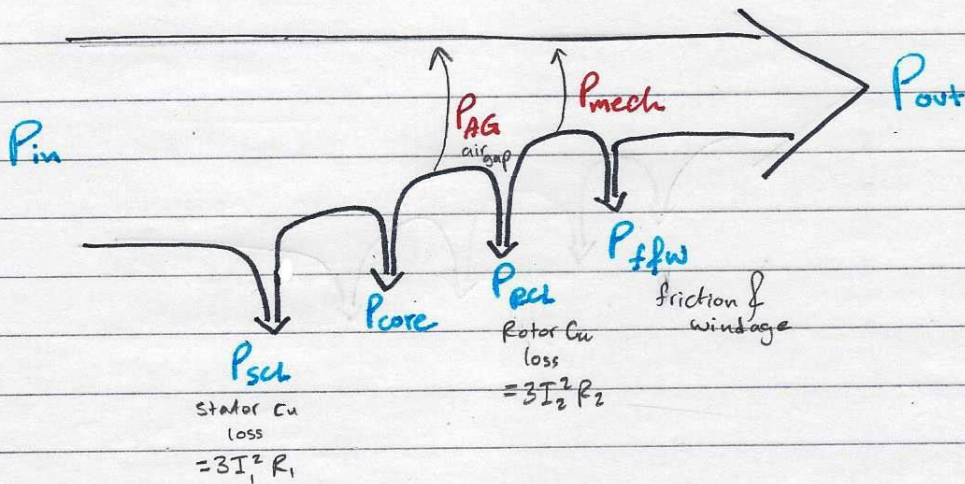 P_in
P_AG
air gap
P_mech
P_out
P_SCL
stator Cu
loss
= 3I₁² R₁
P_core
P_RCL
Rotor Cu
loss
= 3I₂² R₂
P_f&w
friction &
windage